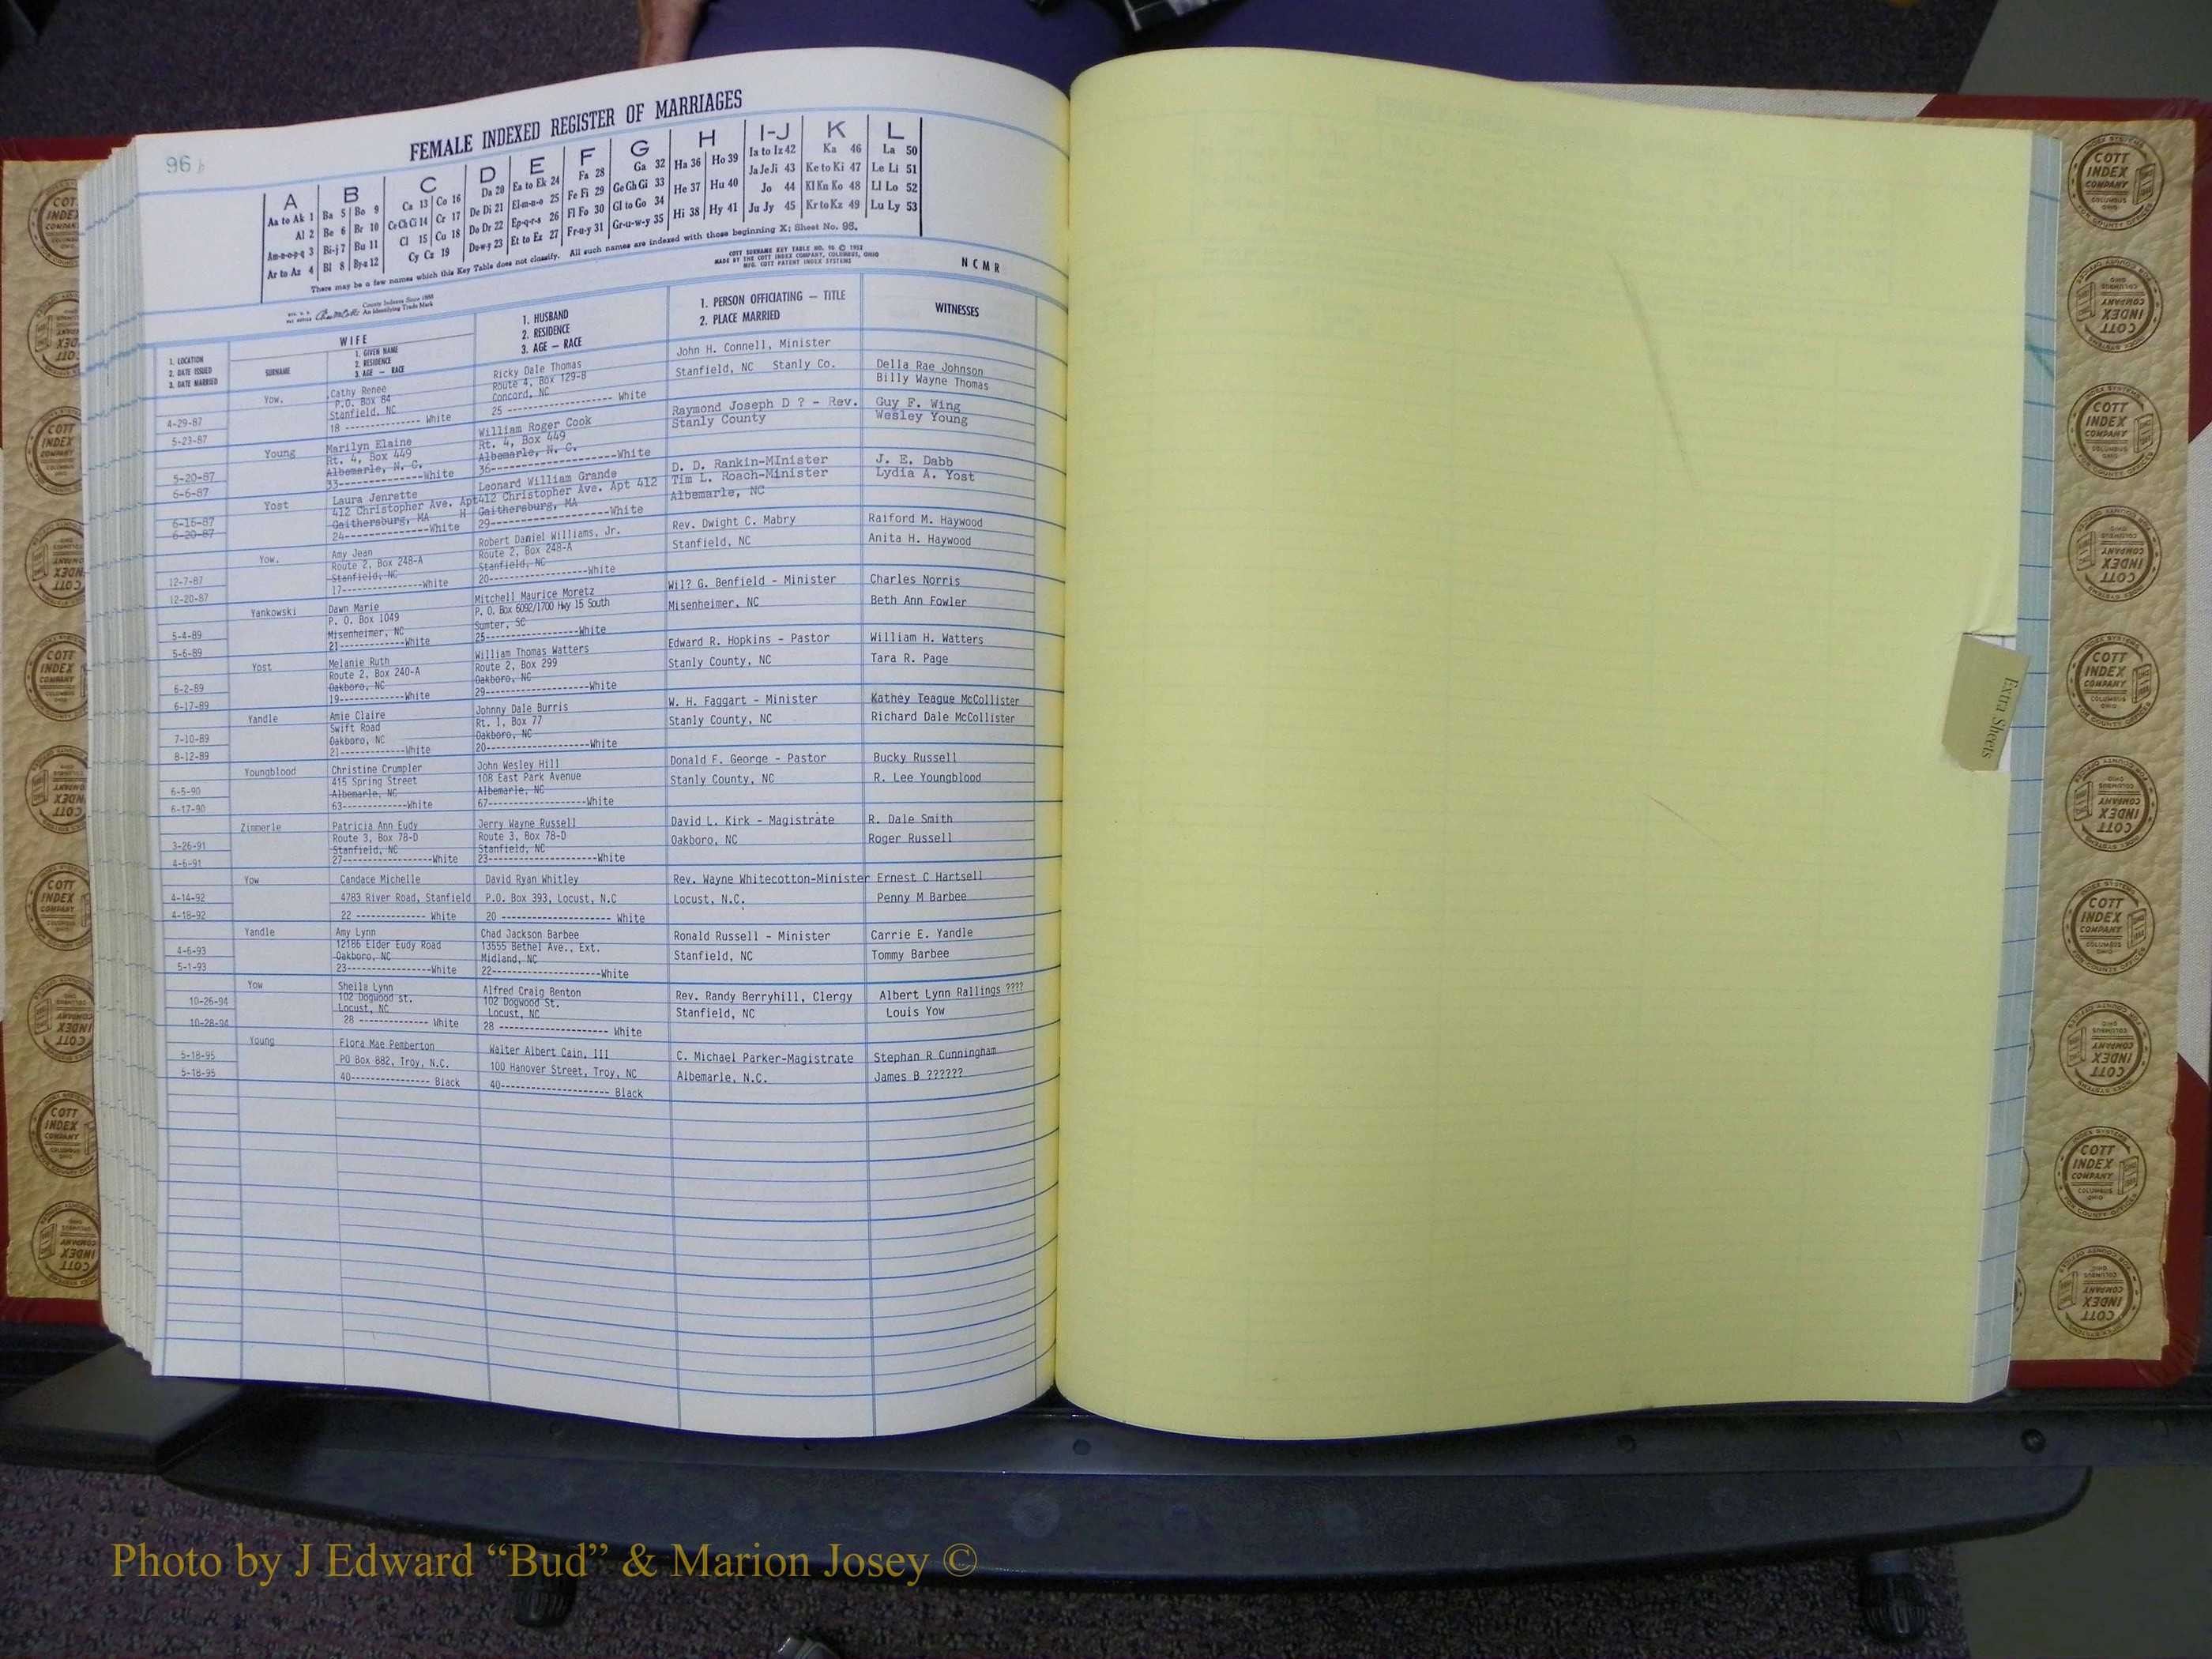 96 b
FEMALE INDEXED REGISTER OF MARRIAGES
A B C D E F G H I-J K L
Aa to Ak 1 Ba 5 Bo 9 Ca 13 Co 16 Da 20 Ea to Ek 24 Fa 28 Ga 32 Ha 36 Ho 39 Ia to Iz 42 Ka 46 La 50
Al 2 Be 6 Br 10 Ce Ch Ci 14 Cr 17 De Di 21 El-m-n-o 25 Fe Fi 29 Ge Gh Gi 33 He 37 Hu 40 Ja Je Ji 43 Ke to Ki 47 Le Li 51
Am-n-o-p-q 3 Bi-j 7 Bu 11 Cl 15 Cu 18 Do Dr 22 Ep-q-r-s 26 Fl Fo 30 Gl to Go 34 Hi 38 Hy 41 Jo 44 Kl Kn Ko 48 Ll Lo 52
Ar to Az 4 Bl 8 By-z 12 Cy Cz 19 Du-w-y 23 Et to Ez 27 Fr-u-y 31 Gr-u-w-y 35 Ju Jy 45 Kr to Kz 49 Lu Ly 53
There may be a few names which this Key Table does not classify. All such names are indexed with those beginning X; Sheet No. 95.
COTT SURNAME KEY TABLE NO. 96 © 1952
MADE BY THE COTT INDEX COMPANY, COLUMBUS, OHIO
MFG. COTT PATENT INDEX SYSTEMS
NCMR
County Indexes Since 1888
An Identifying Trade Mark
1. LOCATION
2. DATE ISSUED
3. DATE MARRIED
WIFE
SURNAME
1. GIVEN NAME
2. RESIDENCE
3. AGE — RACE
1. HUSBAND
2. RESIDENCE
3. AGE — RACE
1. PERSON OFFICIATING — TITLE
2. PLACE MARRIED
WITNESSES
4-29-87
5-23-87
Yow,
Cathy Renee
P.O. Box 84
Stanfield, NC
18 -------------- White
Ricky Dale Thomas
Route 4, Box 129-B
Concord, NC
25 ------------------- White
John H. Connell, Minister
Stanfield, NC Stanly Co.
Della Rae Johnson
Billy Wayne Thomas
5-20-87
6-6-87
Young
Marilyn Elaine
Rt. 4, Box 449
Albemarle, N. C.
33--------------White
William Roger Cook
Rt. 4, Box 449
Albemarle, N. C.
36--------------------White
Raymond Joseph D ? - Rev.
Stanly County
Guy F. Wing
Wesley Young
6-16-87
6-20-87
Yost
Laura Jenrette
412 Christopher Ave. Apt
Gaithersburg, MA H
24-------------White
Leonard William Grande
412 Christopher Ave. Apt 412
Gaithersburg, MA
29-----------------------White
D. D. Rankin-MInister
Tim L. Roach-Minister
Albemarle, NC
J. E. Dabb
Lydia A. Yost
12-7-87
12-20-87
Yow,
Amy Jean
Route 2, Box 248-A
Stanfield, NC
17-------------White
Robert Daniel Williams, Jr.
Route 2, Box 248-A
Stanfield, NC
20------------------White
Rev. Dwight C. Mabry
Stanfield, NC
Raiford M. Haywood
Anita H. Haywood
5-4-89
5-6-89
Yankowski
Dawn Marie
P. O. Box 1049
Misenheimer, NC
21-------------White
Mitchell Maurice Moretz
P. O. Box 6092/1700 Hwy 15 South
Sumter, SC
25-----------------White
Wil? G. Benfield - Minister
Misenheimer, NC
Charles Norris
Beth Ann Fowler
6-2-89
6-17-89
Yost
Melanie Ruth
Route 2, Box 240-A
Oakboro, NC
19-------------White
William Thomas Watters
Route 2, Box 299
Oakboro, NC
29--------------------White
Edward R. Hopkins - Pastor
Stanly County, NC
William H. Watters
Tara R. Page
7-10-89
8-12-89
Yandle
Amie Claire
Swift Road
Oakboro, NC
21-------------White
Johnny Dale Burris
Rt. 1, Box 77
Oakboro, NC
20--------------------White
W. H. Faggart - Minister
Stanly County, NC
Kathey Teague McCollister
Richard Dale McCollister
6-5-90
6-17-90
Youngblood
Christine Crumpler
415 Spring Street
Albemarle, NC
63-------------White
John Wesley Hill
108 East Park Avenue
Albemarle, NC
67-------------------White
Donald F. George - Pastor
Stanly County, NC
Bucky Russell
R. Lee Youngblood
3-26-91
4-6-91
Zimmerle
Patricia Ann Eudy
Route 3, Box 78-D
Stanfield, NC
27-----------------White
Jerry Wayne Russell
Route 3, Box 78-D
Stanfield, NC
23----------------------White
David L. Kirk - Magistrate
Oakboro, NC
R. Dale Smith
Roger Russell
4-14-92
4-18-92
Yow
Candace Michelle
4783 River Road, Stanfield
22 -------------- White
David Ryan Whitley
P.O. Box 393, Locust, N.C
20 -------------------- White
Rev. Wayne Whitecotton-Minister
Locust, N.C.
Ernest C Hartsell
Penny M Barbee
4-6-93
5-1-93
Yandle
Amy Lynn
12186 Elder Eudy Road
Oakboro, NC
23-----------------White
Chad Jackson Barbee
13555 Bethel Ave., Ext.
Midland, NC
22----------------------White
Ronald Russell - Minister
Stanfield, NC
Carrie E. Yandle
Tommy Barbee
10-26-94
10-28-94
Yow
Sheila Lynn
102 Dogwood st.
Locust, NC
28 -------------- White
Alfred Craig Benton
102 Dogwood St.
Locust, NC
28 -------------------- White
Rev. Randy Berryhill, Clergy
Stanfield, NC
Albert Lynn Rallings ????
Louis Yow
5-18-95
5-18-95
Young
Flora Mae Pemberton
PO Box 882, Troy, N.C.
40--------------- Black
Walter Albert Cain, III
100 Hanover Street, Troy, NC
40-------------------- Black
C. Michael Parker-Magistrate
Albemarle, N.C.
Stephan R Cunningham
James B ??????
Extra Sheets
INDEX SYSTEMS
COTT
INDEX
COMPANY
COLUMBUS
OHIO
FOR COUNTY OFFICES
Photo by J Edward “Bud” & Marion Josey ©